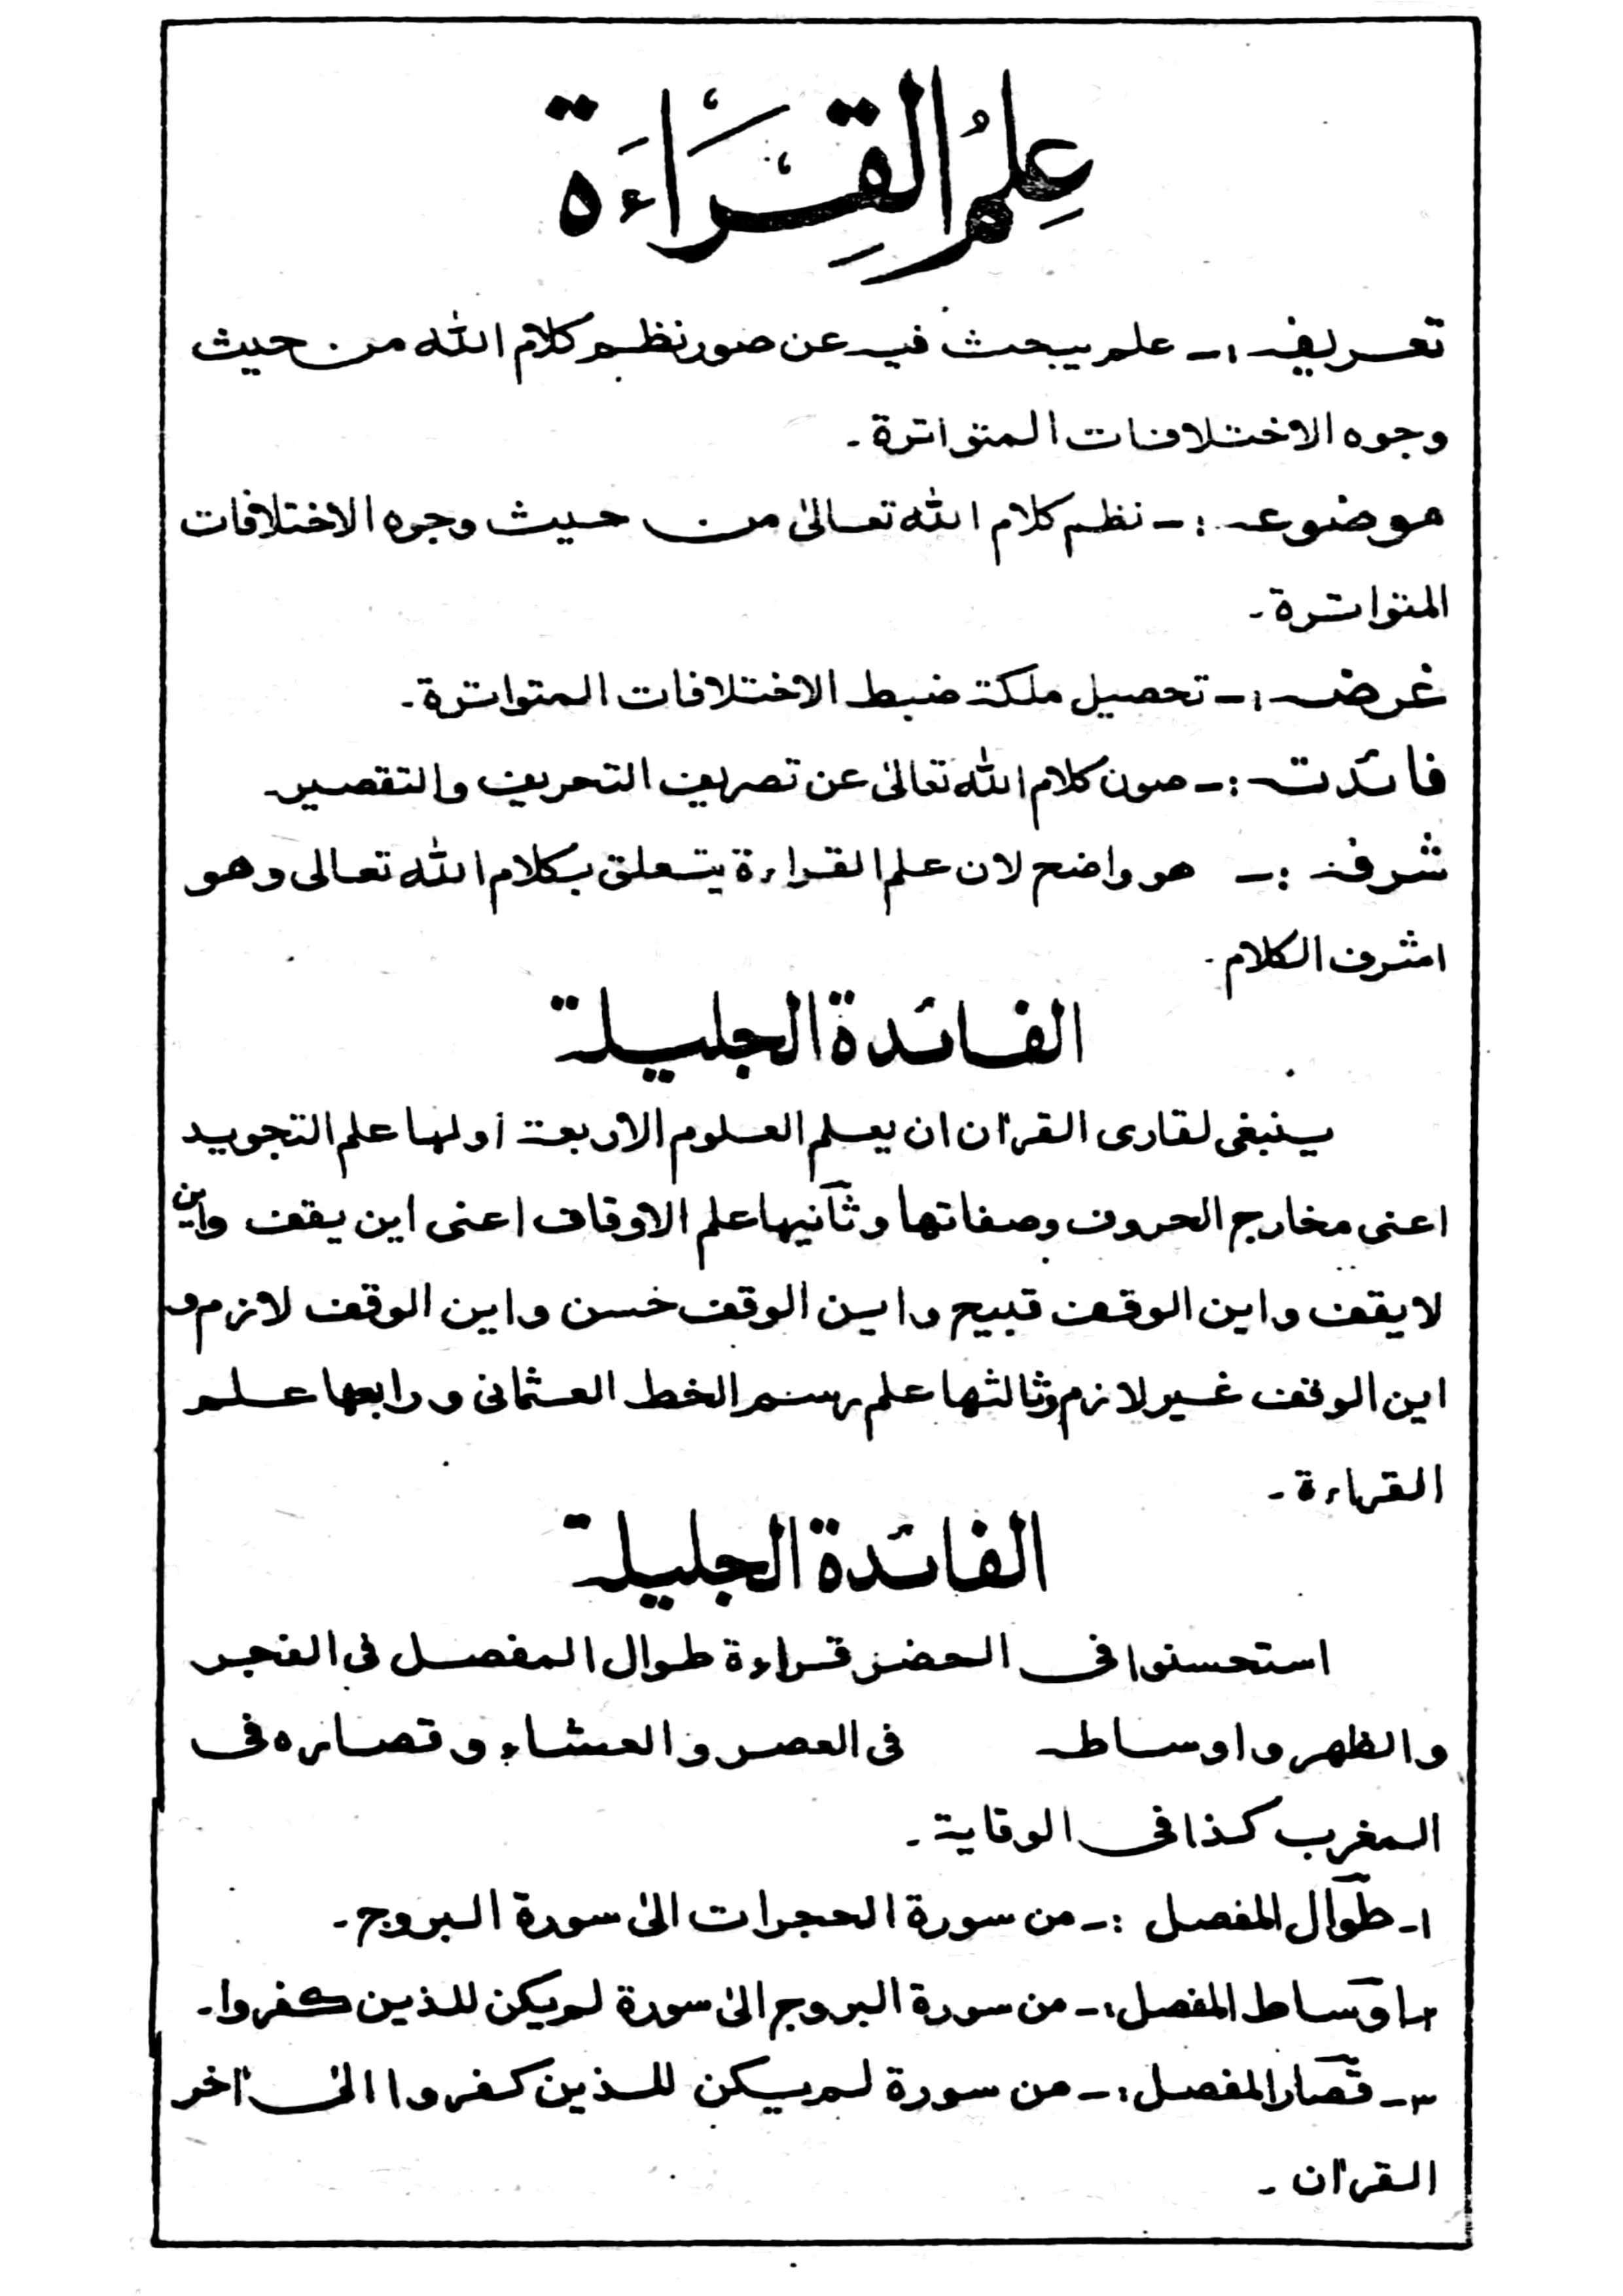 عِلمُ القِرَاءَة
تعريفہ :۔ علم يبحث فيہ عن صور نظم كلام اللّٰه من حيث
وجوه الاختلافات المتواترة ۔
موضوعہ :۔ نظم كلام اللّٰه تعالیٰ من حيث وجوه الاختلافات
المتواترة ۔
غرضہ :۔ تحصيل ملكۃ ضبط الاختلافات المتواترة ۔
فائدتہ :۔ صون كلام اللّٰه تعالیٰ عن تصريف التحريف والتقصير۔
شرفہ :۔ هو واضح لان علم القراءة يتعلق بكلام اللّٰه تعالى وهو
اشرف الكلام ۔
الفائدة الجليلۃ
ينبغى لقارى القراٰن ان يعلم العلوم الاربعۃ اولها علم التجويد
اعنى مخارج الحروف وصفاتها وثانيها علم الاوقاف اعنى اين يقف واين
لايقف واين الوقف قبيح واين الوقف خسن واين الوقف لازم و
اين الوقف غير لازم وثالثها علم رسم الخط العثمانى ورابعها علم
القراءة ۔
الفائدة الجليلۃ
استحسنوا فى الحضر قراءة طوال المفصل فى الفجر
والظهر واوساطہ فى العصر والعشاء وقصاره فى
المغرب كذا فى الوقاية ۔
۱۔ طوال المفصل :۔ من سورة الحجرات الىٰ سورة البروج ۔
۲۔ اوساط المفصل :۔ من سورة البروج الىٰ سورة لم يكن للذين كفروا۔
۳۔ قصار المفصل :۔ من سورة لم يكن للذين كفروا الىٰ اٰخر
القراٰن ۔